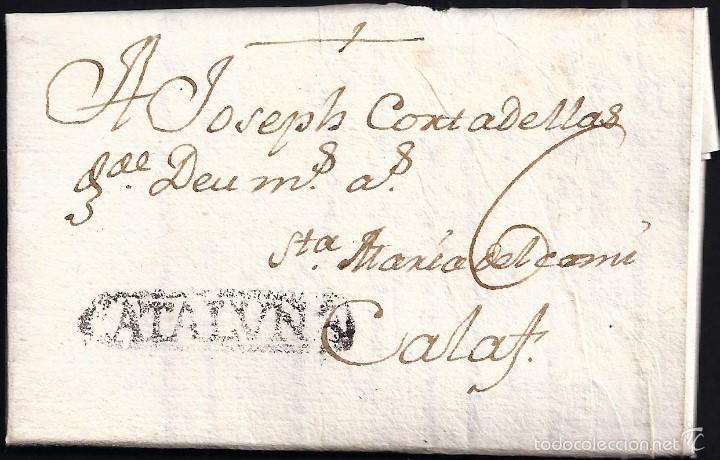 A Joseph Cortadellas
gde. Deu ms. as.
6
Sta. María del camí
CATALUÑA
Calaf.
todocoleccion.net